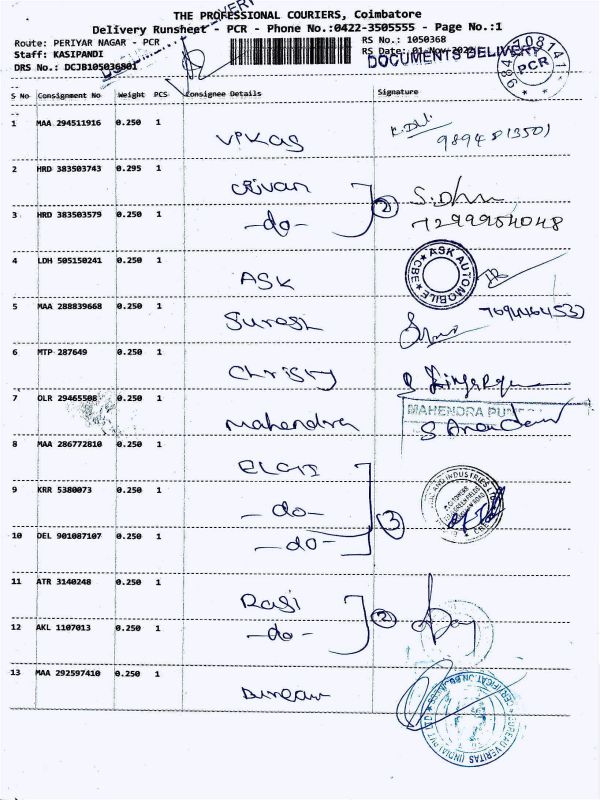 THE PROFESSIONAL COURIERS, Coimbatore
Delivery Runsheet - PCR - Phone No.:0422-3505555 - Page No.:1
Route: PERIYAR NAGAR - PCR RS No.: 1050368
Staff: KASIPANDI RS Date: 01-Nov-2022
DRS No.: DCJB105036801
DOCUMENTS DELIVERY
PCR
S No Consignment No Weight PCS Consignee Details Signature
1 MAA 294511916 0.250 1 VIKAS
2 HRD 383503743 0.295 1
3 HRD 383503579 0.250 1 -do- 2
7299954048
4 LDH 505150241 0.250 1 ASK
ASK AUTOMOBILE CBE
5 MAA 288839668 0.250 1 Suresh
6 MTP 287649 0.250 1 Christy
7 OLR 29465508 0.250 1 Mahendra
MAHENDRA
8 MAA 286772810 0.250 1 ELGI
9 KRR 5380073 0.250 1 -do- 3
10 DEL 901087107 0.250 1 -do-
11 ATR 3140248 0.250 1 Rasi
12 AKL 1107013 0.250 1 -do- 2
13 MAA 292597410 0.250 1 Bureau
BUREAU VERITAS (INDIA)